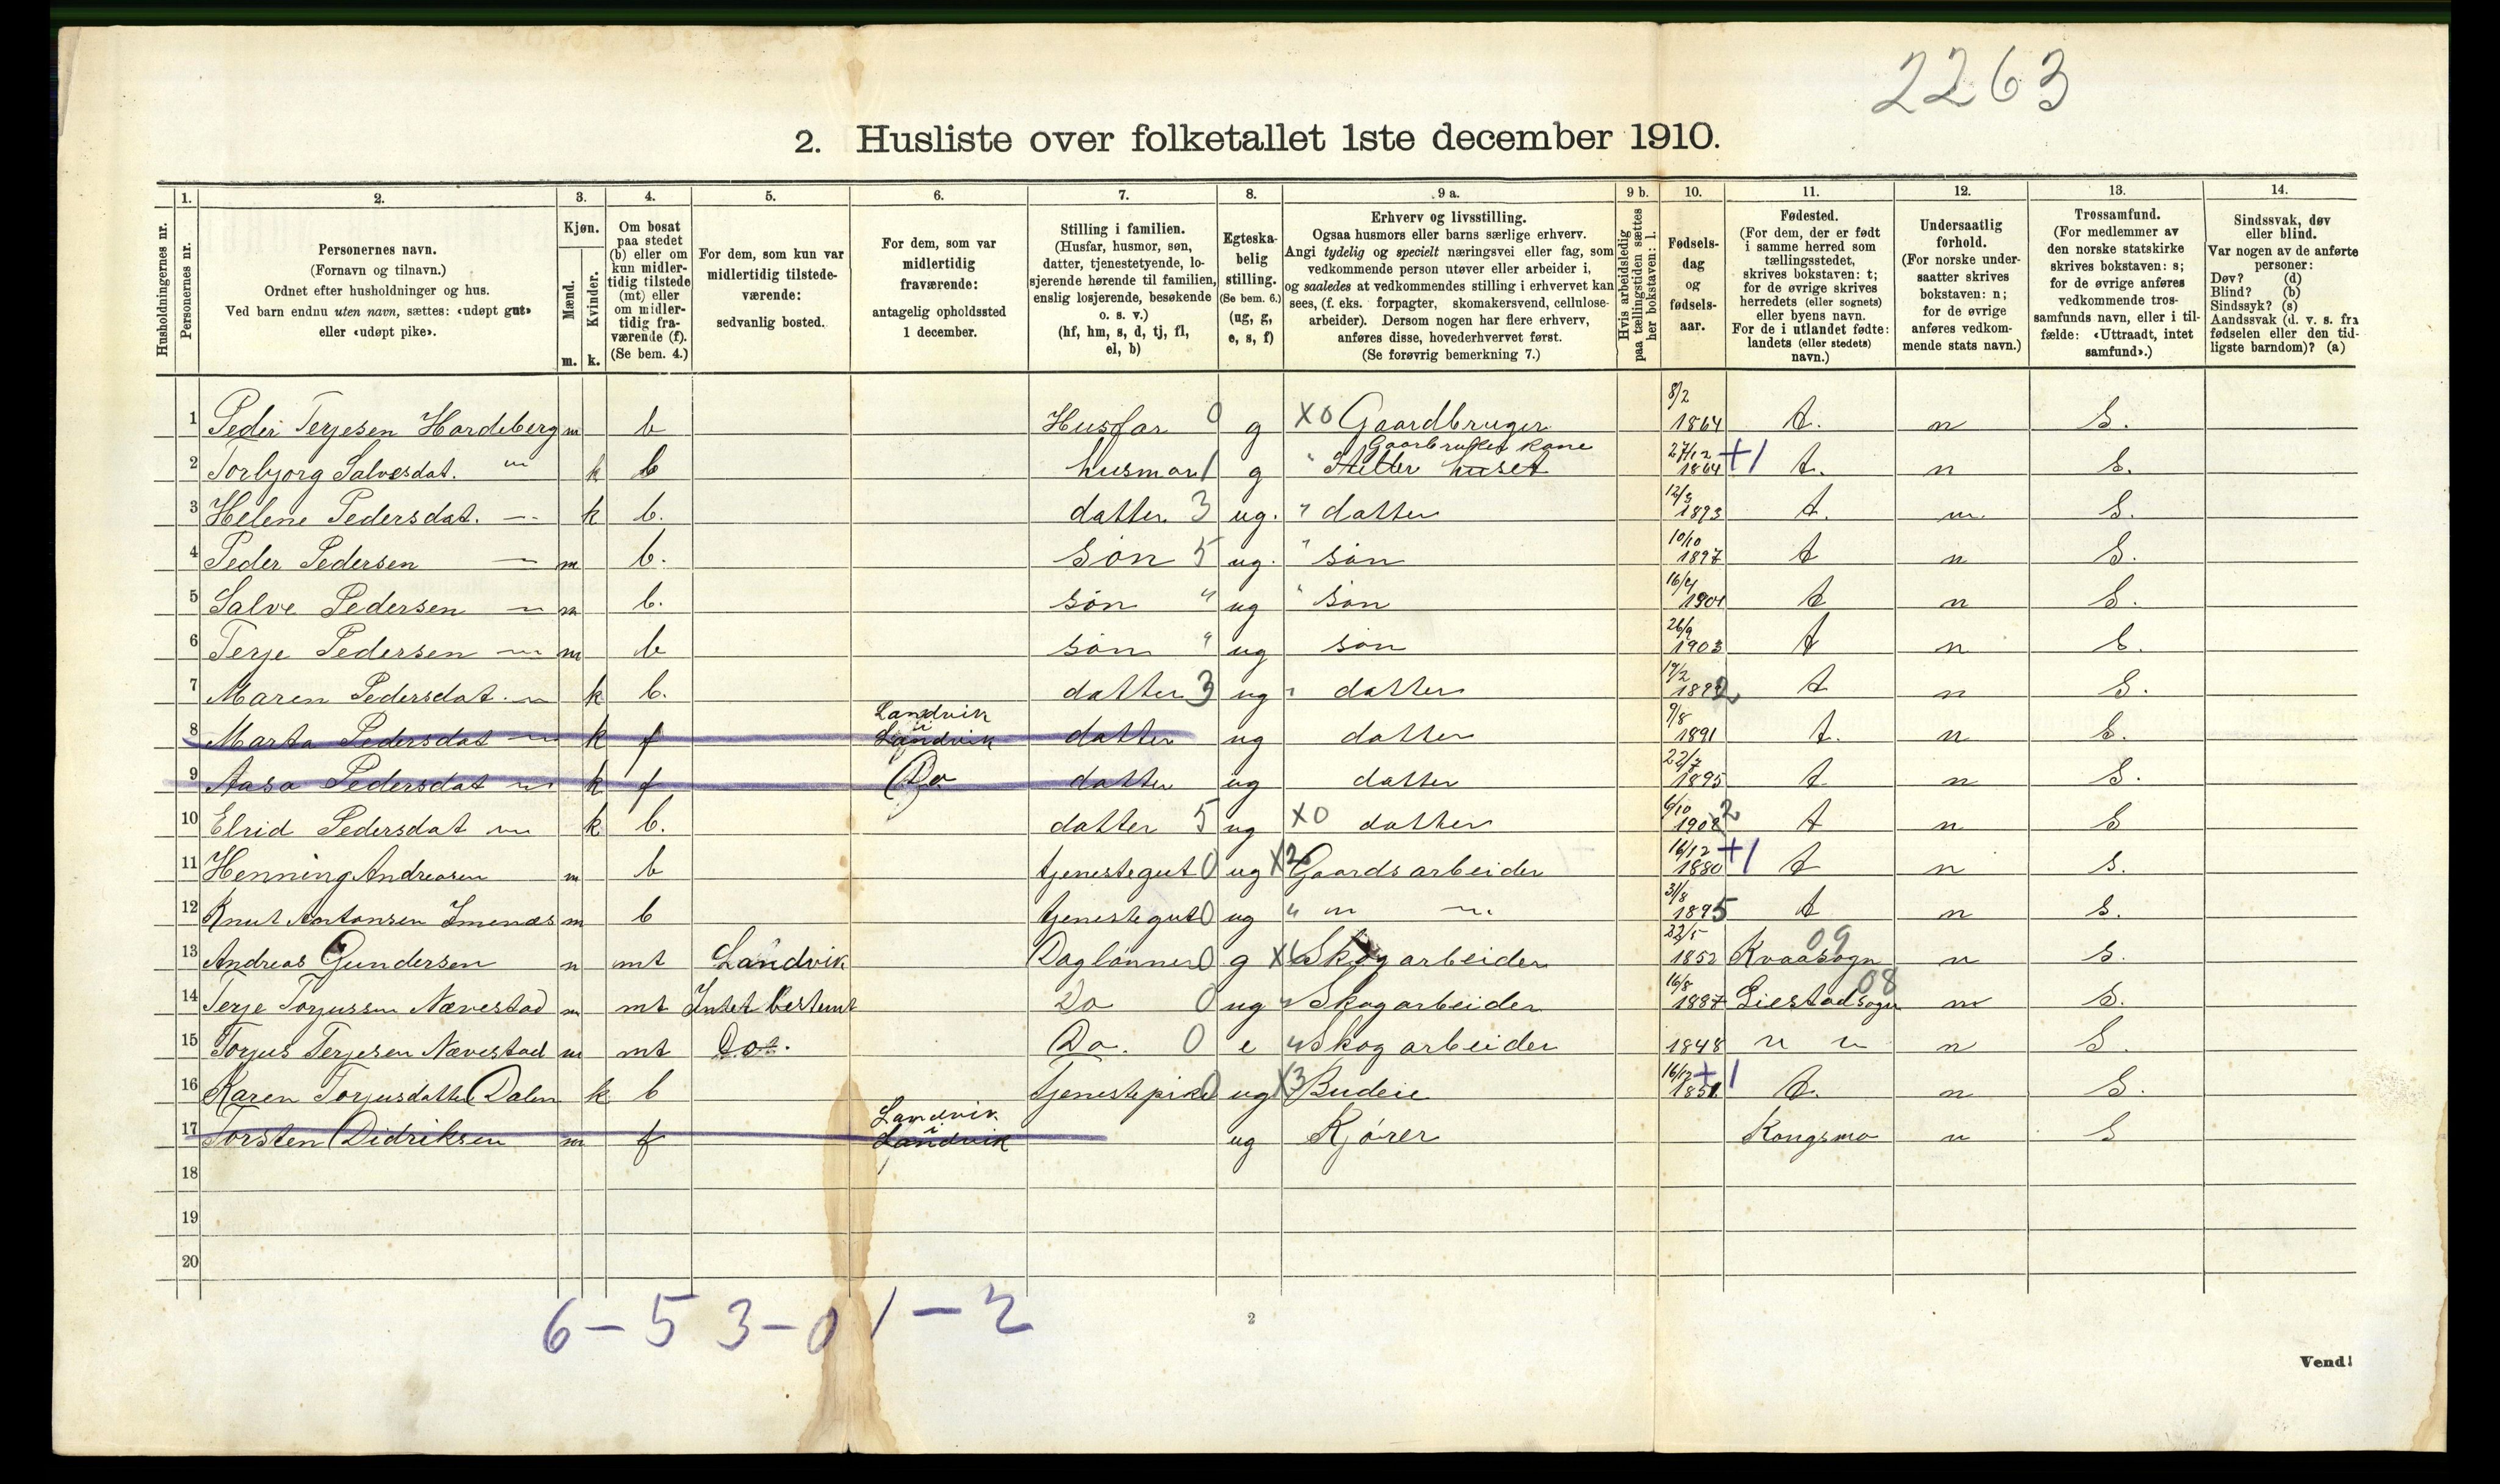 2263
2. Husliste over folketallet 1ste december 1910.
1. 2. 3. 4. 5. 6. 7. 8. 9 a. 9 b. 10. 11. 12. 13. 14.
Husholdningernes nr.
Personernes nr.
Personernes navn.
(Fornavn og tilnavn.)
Ordnet efter husholdninger og hus.
Ved barn endnu uten navn, sættes: «udøpt gut»
eller «udøpt pike».
Kjøn.
Mænd.
Kvinder.
m. k.
Om bosat
paa stedet
(b) eller om
kun midler-
tidig tilstede
(mt) eller
om midler-
tidig fra-
værende (f).
(Se bem. 4.)
For dem, som kun var
midlertidig tilstede-
værende:
sedvanlig bosted.
For dem, som var
midlertidig
fraværende:
antagelig opholdssted
1 december.
Stilling i familien.
(Husfar, husmor, søn,
datter, tjenestetyende, lo-
sjerende hørende til familien,
enslig losjerende, besøkende
o. s. v.)
(hf, hm, s, d, tj, fl,
el, b)
Egteska-
belig
stilling.
(Se bem. 6.)
(ug, g,
e, s, f)
Erhverv og livsstilling.
Ogsaa husmors eller barns særlige erhverv.
Angi tydelig og specielt næringsvei eller fag, som
vedkommende person utøver eller arbeider i,
og saaledes at vedkommendes stilling i erhvervet kan
sees, (f. eks. forpagter, skomakersvend, cellulose-
arbeider). Dersom nogen har flere erhverv,
anføres disse, hovederhvervet først.
(Se forøvrig bemerkning 7.)
Hvis arbeidsledig
paa tællingstiden sættes
her bokstaven: l.
Fødsels-
dag
og
fødsels-
aar.
Fødested.
(For dem, der er født
i samme herred som
tællingsstedet,
skrives bokstaven: t;
for de øvrige skrives
herredets (eller sognets)
eller byens navn.
For de i utlandet fødte:
landets (eller stedets)
navn.)
Undersaatlig
forhold.
(For norske under-
saatter skrives
bokstaven: n;
for de øvrige
anføres vedkom-
mende stats navn.)
Trossamfund.
(For medlemmer av
den norske statskirke
skrives bokstaven: s;
for de øvrige anføres
vedkommende tros-
samfunds navn, eller i til-
fælde: «Uttraadt, intet
samfund».)
Sindssvak, døv
eller blind.
Var nogen av de anførte
personer:
Døv? (d)
Blind? (b)
Sindssyk? (s)
Aandssvak (d. v. s. fra
fødselen eller den tid-
ligste barndom)? (a)
1 Peder Terjesen Hardeberg m b Husfar 0 g X0 Gaardbruger 8/2 1864 t. n S.
Gaarbruger kone
2 Torbjorg Salvesdat. " k b husmor 1 g " Steller huset 27/12 1864 +1 t. n S.
3 Helene Pedersdat. — k b. datter 3 ug. " datter 1893 t. n. S.
4 Peder Pedersen — m b. søn 5 ug. " søn 10/10 1897 t n S.
5 Salve Pedersen — m b. søn " ug " søn 16/4 1901 t n S.
6 Terje Pedersen — m b søn " ug søn 26/9 1903 t n S.
7 Maren Pedersdat. — k b. datter 3 ug " datter 19/2 1892 t n S.
Landvik
8 Marta Pedersdat — k f i Landvik datter ug datter 9/8 1891 t. n S.
9 Aasa Pedersdat — k f Do datter ug datter 22/7 1895 t n S.
10 Elrid Pedersdat — k b. datter 5 ug X0 datter 6/10 1902 2 t n S
11 Henning Andreasen m b tjenestegut 0 ug X2 Gaardsarbeider 16/12 1880 +1 t n s.
12 Knut Antonsen Imenæs m b tjenestegut 0 ug " " — 31/8 1895 t n s.
13 Andreas Gundersen m mt Landvik Daglønner 0 g X6 Skogarbeider 22/5 1852 Kvaasogn 09 n s.
14 Terje Torjussen Nævestad m mt Intet bestemt Do 0 ug " Skogarbeider 16/8 1887 Giestadsogn 08 n S.
15 Torjus Terjesen Nævestad m mt Do. Do. 0 e " Skog arbeider 1848 " " n S.
16 Karen Torjusdatter Dalen k b Tjenestepike 0 ug X3 Budeie 16/12 1851 +1 t. n S.
Landvik
17 Torsten Didriksen m f i Landvik ug Kjører Kongsmo n S
18
19
20
6–53–01–2
2
Vend!